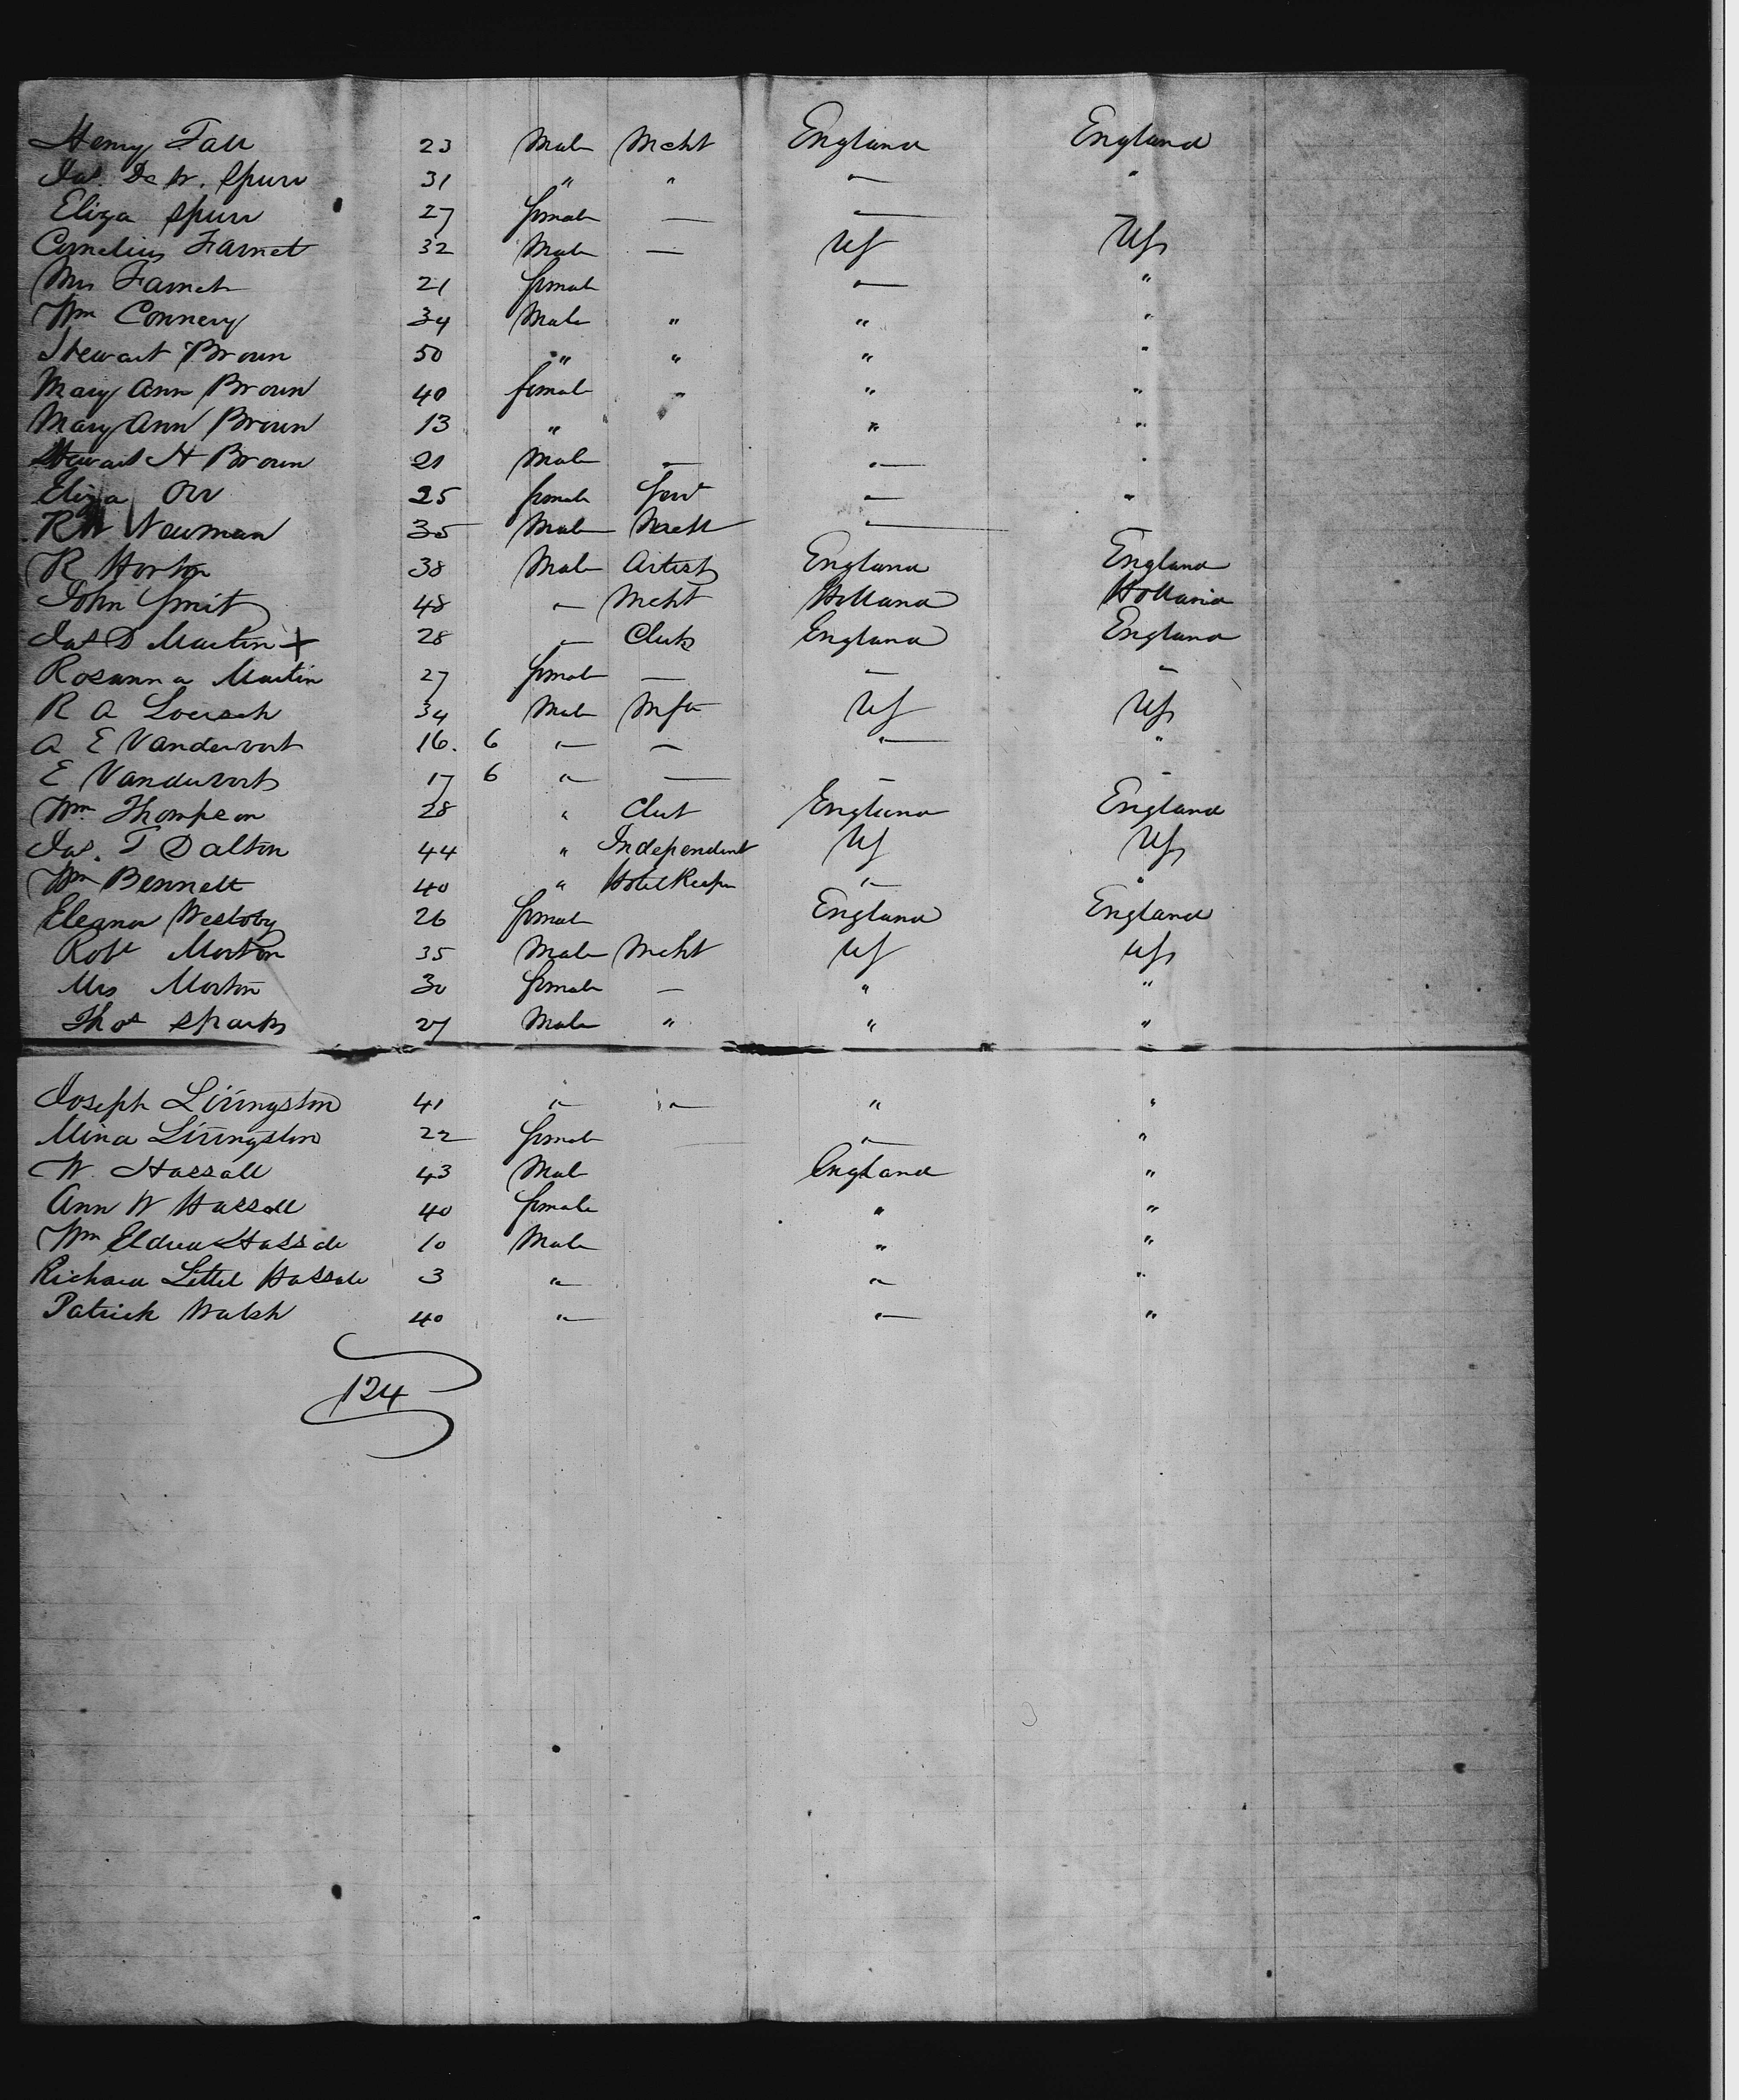 Henry Fall 23 Male Mcht England England
Jas. De W. Spurr 31 " " " "
Eliza Spurr 27 female — —
Cornelius Farnet 32 Male — US US
Mrs Farnet 21 female " "
Wm Connery 34 Male " " "
Stewart Brown 50 " " " "
Mary Ann Brown 40 female " " "
Mary Ann Brown 13 " " "
Stewart H Brown 21 Male — " "
Eliza Orr 25 female Serv " "
R W Newman 35 Male Mcht "
R Horton 38 Male Artist England England
John Smit 48 " Mcht Holland Holland
Jas D Martin + 28 " Clerk England England
Rosanna Martin 27 female — " "
R A Loersch 34 Male Mfr US US
A E Vandervort 16. 6 " — " "
E Vandervort 17 6 " — " "
Wm Thompson 28 " Clerk England England
Jas. T Dalton 44 " Independent US US
Wm Bennett 40 " Hotel Keeper " "
Eleanor Westoby 26 female England England
Robt Morton 35 Male Mcht US US
Mrs Morton 30 female — " "
Thos Sparks 27 Male " " "
Joseph Livingston 41 " " " "
Mina Livingston 22 female — " "
W. Hassall 43 Male England "
Ann W Hassall 40 female " "
Wm Hassall 10 Male " "
Richard Littel Hassall 3 " " "
Patrick Walsh 40 " " "
124